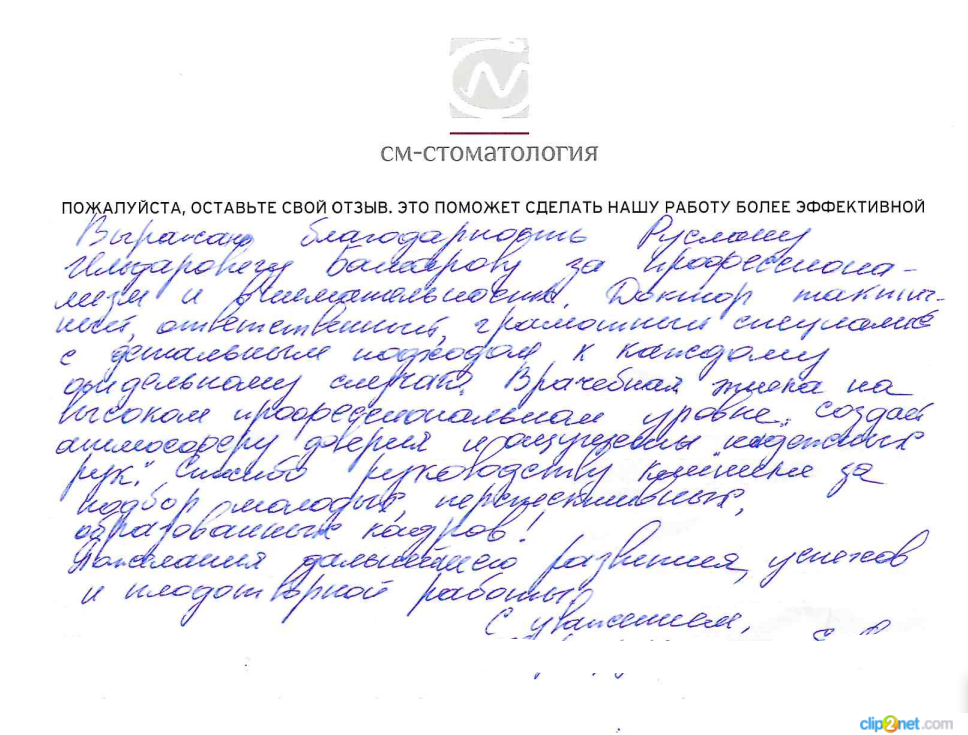 см-стоматология
ПОЖАЛУЙСТА, ОСТАВЬТЕ СВОЙ ОТЗЫВ. ЭТО ПОМОЖЕТ СДЕЛАТЬ НАШУ РАБОТУ БОЛЕЕ ЭФФЕКТИВНОЙ
Выражаю благодарность Руслану
Ильдаровичу за профессиона-
лизм и внимательность. Доктор тактич-
ный, ответственный, грамотный специалист
с детальным подходом к каждому
отдельному случаю. Врачебная этика на
высоком профессиональном уровне. Создает
атмосферу доверия и ощущения "надежных
рук". Спасибо руководству клиники за
подбор молодых, перспективных,
образованных кадров!
Пожелания дальнейшего развития, успехов
и плодотворной работы.
С уважением,
clip2net.com